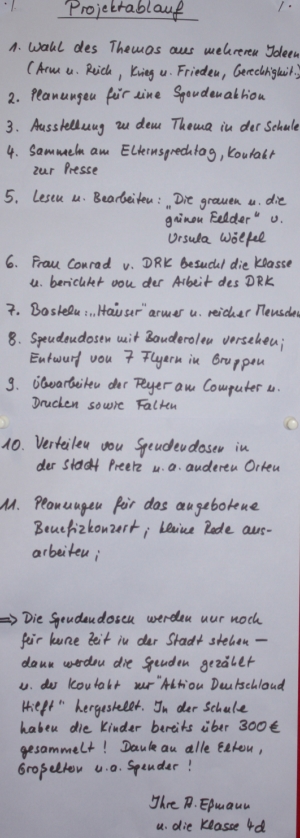 Projektablauf
1. Wahl des Themas aus mehreren Ideen
(Arm u. Reich, Krieg u. Frieden, Gerechtigkeit)
2. Planungen für eine Spendenaktion
3. Ausstellung zu dem Thema in der Schule
4. Sammeln am Elternsprechtag, Kontakt
zur Presse
5. Lesen u. Bearbeiten: „Die grauen u. die
grünen Felder" v.
Ursula Wölfel
6. Frau Conrad v. DRK besucht die Klasse
u. berichtet von der Arbeit des DRK
7. Basteln: „Häuser" armer u. reicher Menschen
8. Spendendosen mit Banderolen versehen;
Entwurf von 7 Flyern in Gruppen
9. Überarbeiten der Flyer am Computer u.
Drucken sowie Falten
10. Verteilen von Spendendosen in
der Stadt Preetz u. a. anderen Orten
11. Planungen für das angebotene
Benefizkonzert; kleine Rede aus-
arbeiten;
⇒ Die Spendendosen werden nur noch
für kurze Zeit in der Stadt stehen –
dann werden die Spenden gezählt
u. der Kontakt zur "Aktion Deutschland
Hilft" hergestellt. In der Schule
haben die Kinder bereits über 300 €
gesammelt! Dank an alle Eltern,
Großeltern u. a. Spender!
Ihre A. Eßmann
u. die Klasse 4d